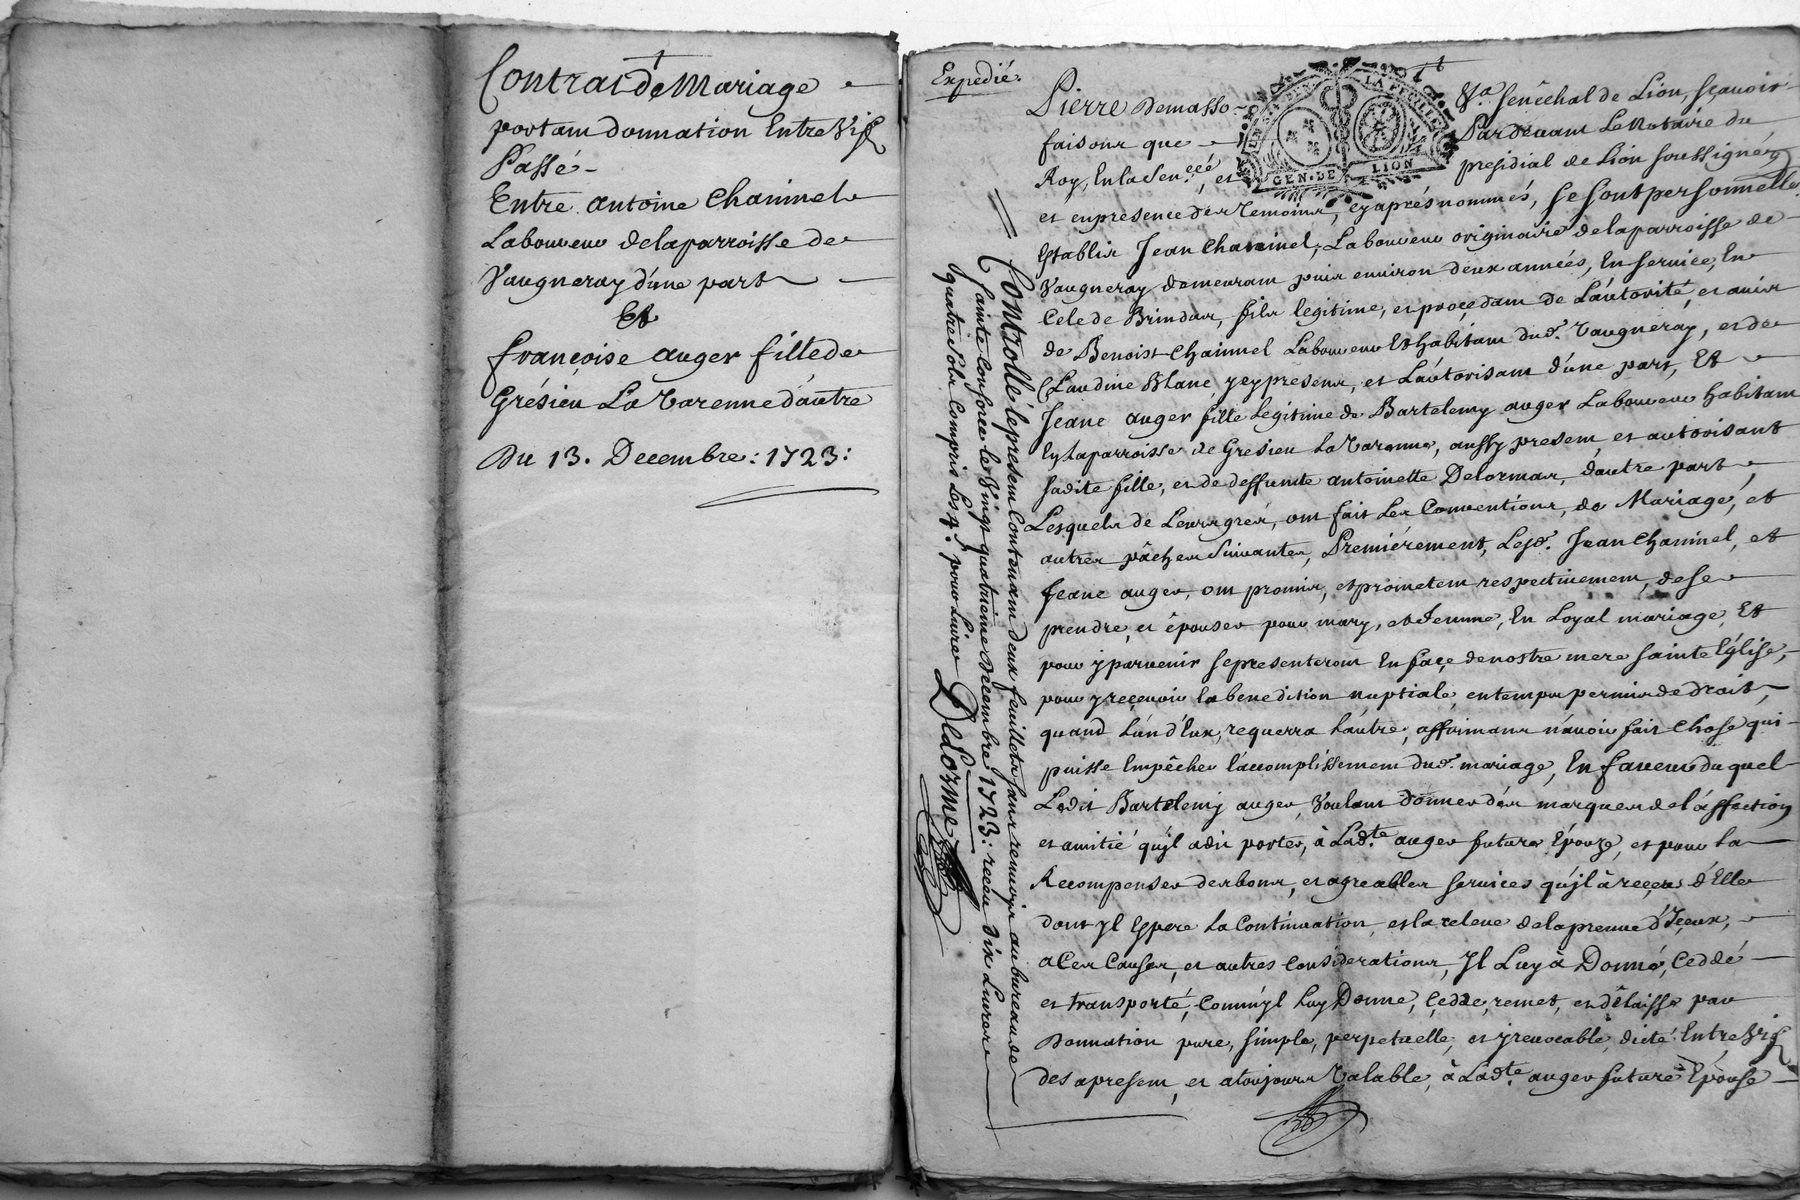 Contrat de Mariage
portant donnation Entre Vifs
Passé
Entre antoine Chaninel
Laboureur de la parroisse de
Vaugneray d'une part
Et
françoise auger fille de
Grésieu La Varenne d'autre
Du 13. Decembre: 1723:
Expedié.
Pierre Demasso Sénéchal de Lion, sçavoir
faisons que Pardevant Le Notaire du
Roy, En la Sen.ceé et presidial de Lion soussigné,
GEN. DE LION
et en presence des temoins, cy aprés nommés, se sont personnelle
Establis Jean Chaninel, Laboureur originaire de la parroisse de
Vaugneray, demeurant puis environ deux années, En service, En
Cele de Brindas, fils legitime, et procedant de L'autorité, et avis
de Benoist Chaininel Laboureur Et habitant dud. Vaugneray, et de
Claudine Blanc, yey presens, et L'autorisant d'une part, Et
Jeane auger fille Legitime de Bartelemy auger Laboureur habitant
En la parroisse de Gresieu La Varenne, aussy present, et autorisant
sadite fille, et de deffunte antoinette Delormas, d'autre part
Lesquels de Leurs grés, ont fait Les Conventions, de Mariage, et
autres pâches Suivantes, Premiérement, Lesd. Jean Chaninel, et
Jeane auger, ont promis, et prometent respectivement, de se
prendre, et épouser pour mary, et femme, En Loyal mariage, Et
pour y parvenir se presenteront En façe de nostre mere sainte Eglise,
pour y reçevoir la benediction nuptiale, en temps permis de droit,
quand L'un d'Eux, requerra L'autre, affirmans n'avoir fait Chose qui
puisse Empêcher L'accomplissement dud. mariage, En faveur du quel
Ledit Bartelemy auger, Voulant donner des marques de l'affection
et amitié qu'jl a dit porter, à Lad.te auger future Epouze, et pour La
Recompenser des bons, et agreables services qu'jl à reçeus d'Elle
dont jl Espere La Continuation, et la releve de la preuve d'Iceux,
a Ces Causes, et autres Considerations, Jl Luy à Donné, Ceddé
et transporté, Comm'jl Luy Donne, Cedde, remet, et délaisse par
Donnation pure, simple, perpetuelle, et jrrevocable, dicté Entre Vifs
des apresent, et a toujours Valable, à Lad.te auger future Epouse
Contrôllé le present Contenant deux feuillets sans renvois au bureau de
sainte Consorce le Vingt quatrième Decembre 1723: receu dix Livres
quatre sols Compris Les 4.s pour Livre Delorme